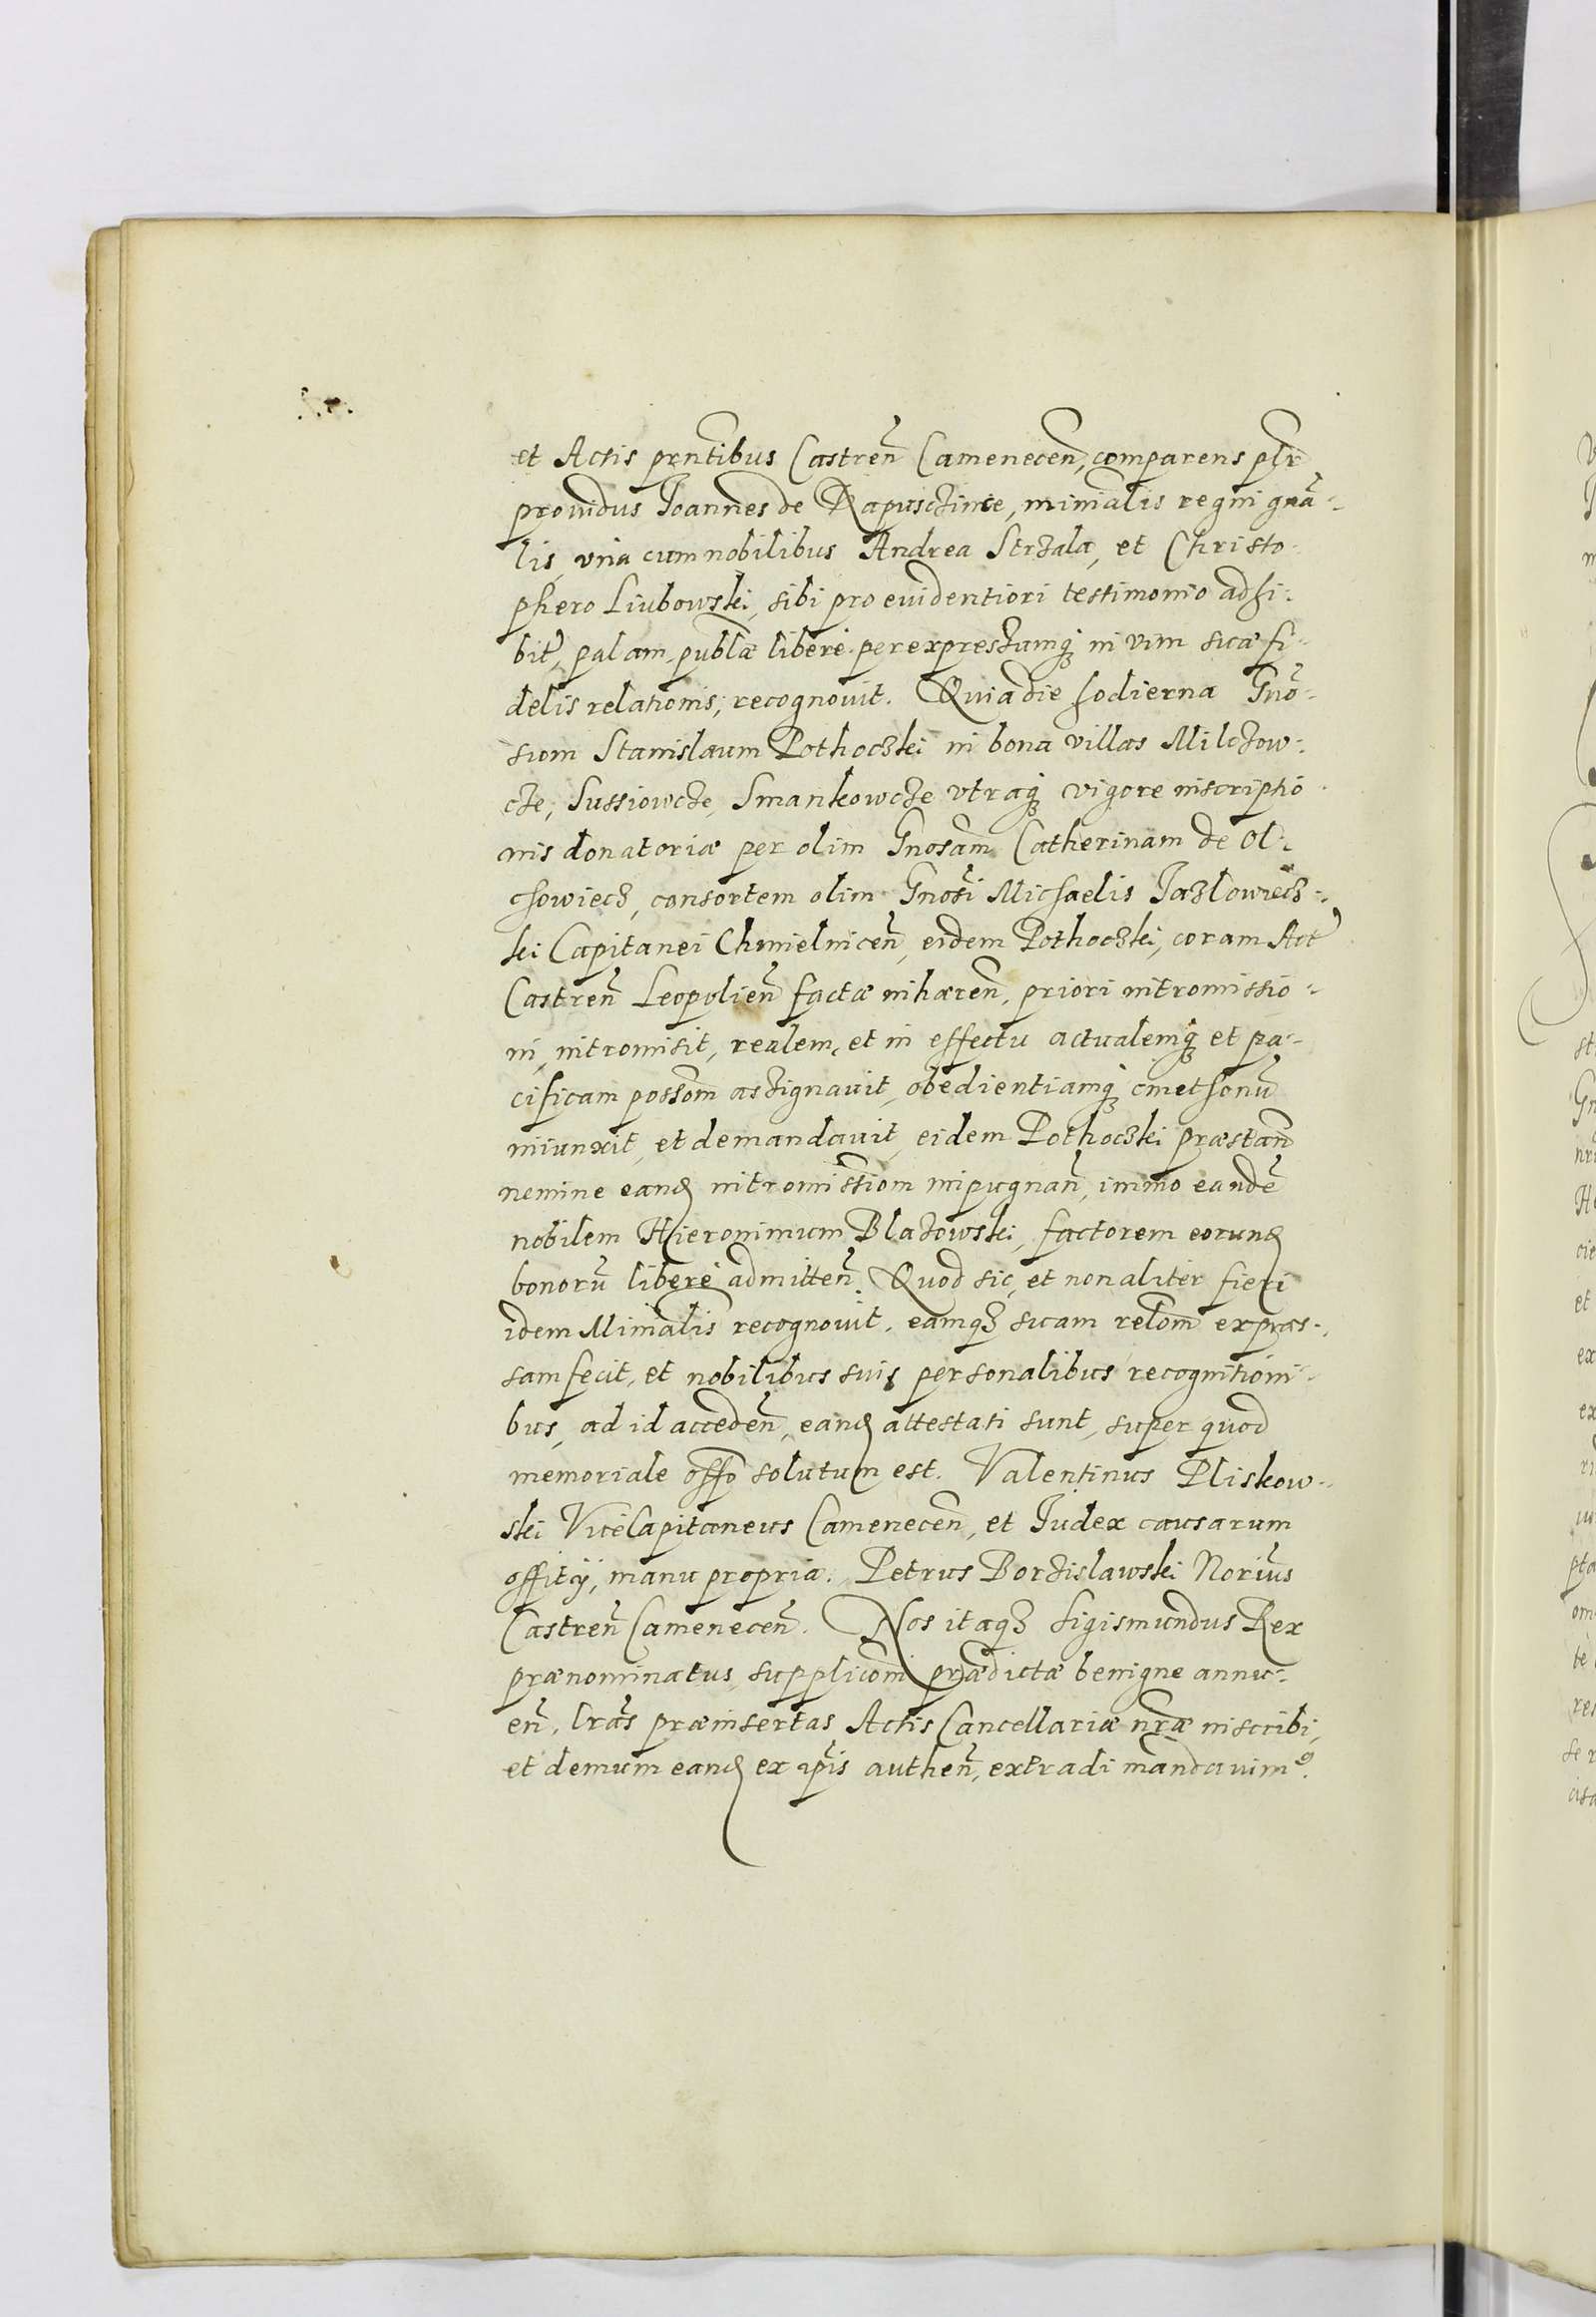 et Actis prntibus Castren̄ Camenecen̄, comparens plr
prouidus Joannes de Rapusczince, minialis regni gnā-
lis, vna cum nobilibus Andrea Strzala, et Christo-
phero Liubowski, sibi pro euidentiori testimonio adhi-
bit, palam, publæ libere per expressumq; in vim suæ fi-
delis relationis, recognouit. Quia die hodierna Gnō-
siom Stanislaum Pothoczki in bona villas Milczow-
cze, Sussiowcze, Smankowcze vtraq; vigore inscriptio
nis donatoriæ per olim Gnosam Catherinam de Ol-
chowiecz, consortem olim Gnosi Michaelis Jazlowiecz-
ki Capitanei Chmielnicen̄, eidem Pothoczki, coram Act
Castren̄ Leopolien̄ factæ inhæren̄, priori intromissio-
ni, intromisit, realem, et in effectu actualemq; et pa-
cificam possom assignauit, obedientiamq; cmethonū
iniunxit, et demandauit, eidem Pothoczki præstan̄
nemine eand intromissiom inpugnan̄, immo eandē
nobilem Hieronimum Blazowski, factorem eorund
bonorū libere admitten̄. Quod sic, et non aliter fieri
idem Minialis recognouit. eamq; suam relōm expræs-
sam fecit, et nobilibus suis personalibus recognitioni-
bus, ad id acceden̄, eand attestati sunt, super quod
memoriale offo solutum est. Valentinus Pliskow-
ski ViceCapitaneus Camenecen̄, et Judex causarum
offitÿ, manu propria. Petrus Borzislawski Norius
Castren̄ Camenecen̄. Nos itaq; Sigismundus Rex
prænominatus, supplicōni prædictæ benigne annu-
en̄, lrās præinsertas Actis Cancellariæ nræ inscribi,
et demum eand ex ipis authen̄, extradi mandauim9.